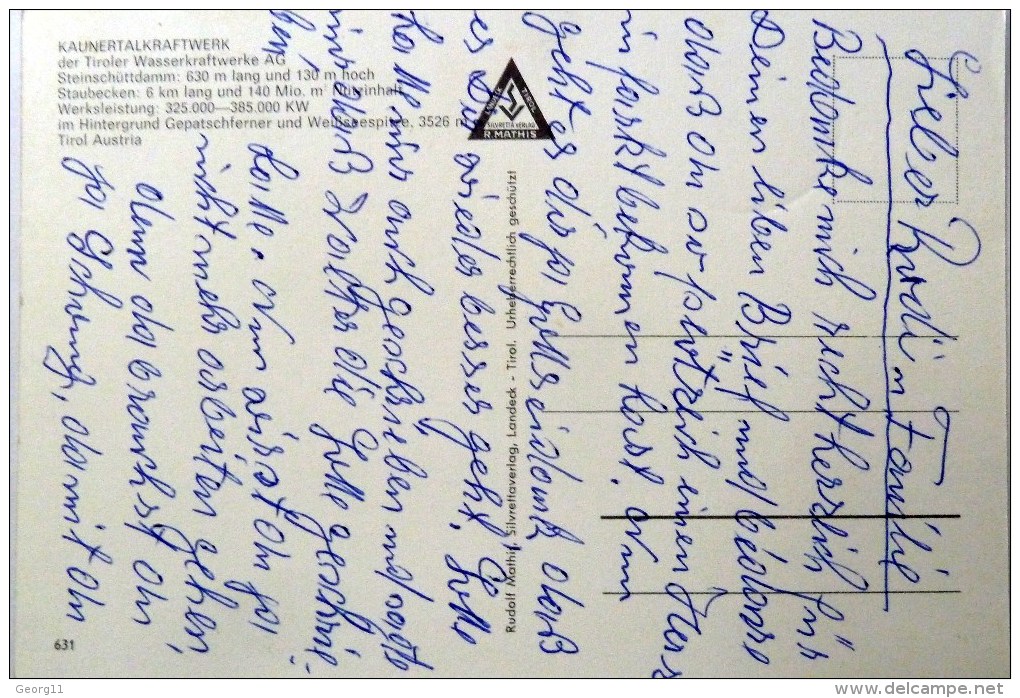 KAUNERTALKRAFTWERK
der Tiroler Wasserkraftwerke AG
Steinschüttdamm: 630 m lang und 130 m hoch
Staubecken: 6 km lang und 140 Mio. m³ Nutzinhalt
Werksleistung: 325.000—385.000 KW
im Hintergrund Gepatschferner und Weißseespitze, 3526 m
Tirol Austria
SILVRETTA VERLAG
R. MATHIS
Rudolf Mathis, Silvrettaverlag, Landeck - Tirol. Urheberrechtlich geschützt
Lieber Rudi n Familie
Bedanke mich recht herzlich für
Deinen liben Brief und bedaure
daß du so plötzlich einen Herz
infarkt bekommen hast. Nun
geht es dir ja Gottseidank daß
es Dir wieder besser geht.
hatte mir auch geschrieben und sagte
hatte. Nun wirst du ja
nicht mehr arbeiten gehen,
denn da brauchst du
ja Schonung, damit du
631
Georg11
delcampe.net